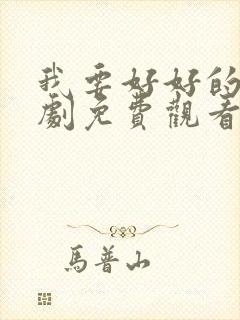 我要好好的
劇免費觀看
馬普山